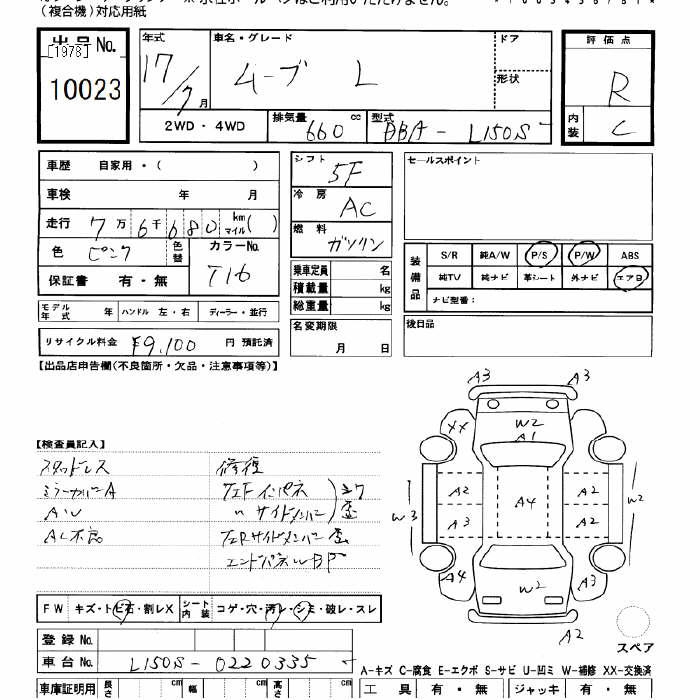 (複合機)対応用紙
出品No. [1978]
10023
年式 車名・グレード ドア
17/7月 ムーブ L 形状
2WD・4WD 排気量 660 cc 型式 DBA- L150S
評価点
R
内装 C
車歴 自家用・( )
車検 年 月
走行 7万6千680 km マイル( )
色 ピンク 色替 カラーNo. T16
保証書 有・無
モデル年式 年 ハンドル 左・右 ディーラー・並行
リサイクル料金 ¥9,100 円 預託済
シフト 5F
冷房 AC
燃料 ガソリン
乗車定員 名
積載量 kg
総重量 kg
名変期限
月 日
セールスポイント
装備品 S/R 純A/W P/S P/W ABS
純TV 純ナビ 革シート 外ナビ エアB
ナビ型番:
後日品
【出品店申告欄(不良箇所・欠品・注意事項等)】
【検査員記入】
スタッドレス
ミラーカバーA
修復
サイドメンバー
FW キズ・トビ石・割レX シート内装 コゲ・穴・汚レ・シミ・破レ・スレ
登録No.
車台No. L150S-0220335
車庫証明用 長さ cm 幅 cm 高さ cm
A3 A3
XX W2 A1
A2 A4 A2
W3 A3 A2 W2
A4 W2 A3
A2
スペア
A-キズ C-腐食 E-エクボ S-サビ U-凹ミ W-補修 XX-交換済
工具 有・無 ジャッキ 有・無